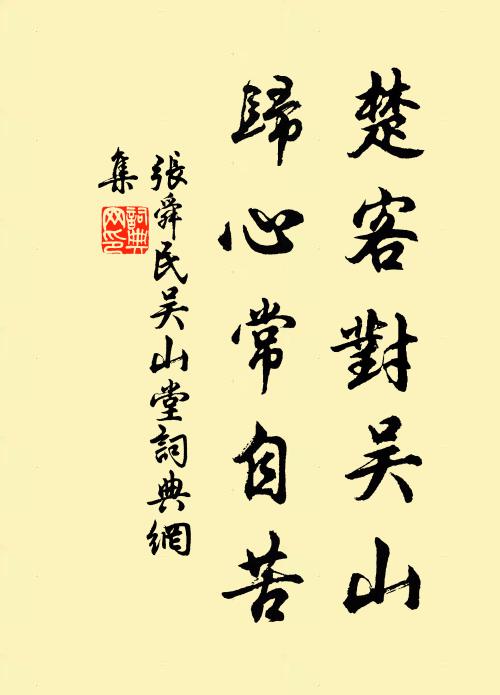 楚客對吴山
歸心常自苦
張舜民吴山堂詞典網
集
詞典
网印